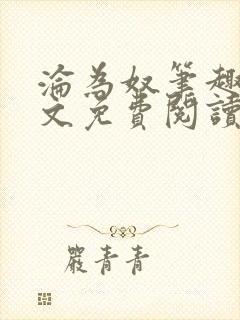 淪為奴筆趣
文免費閱讀
嚴青青